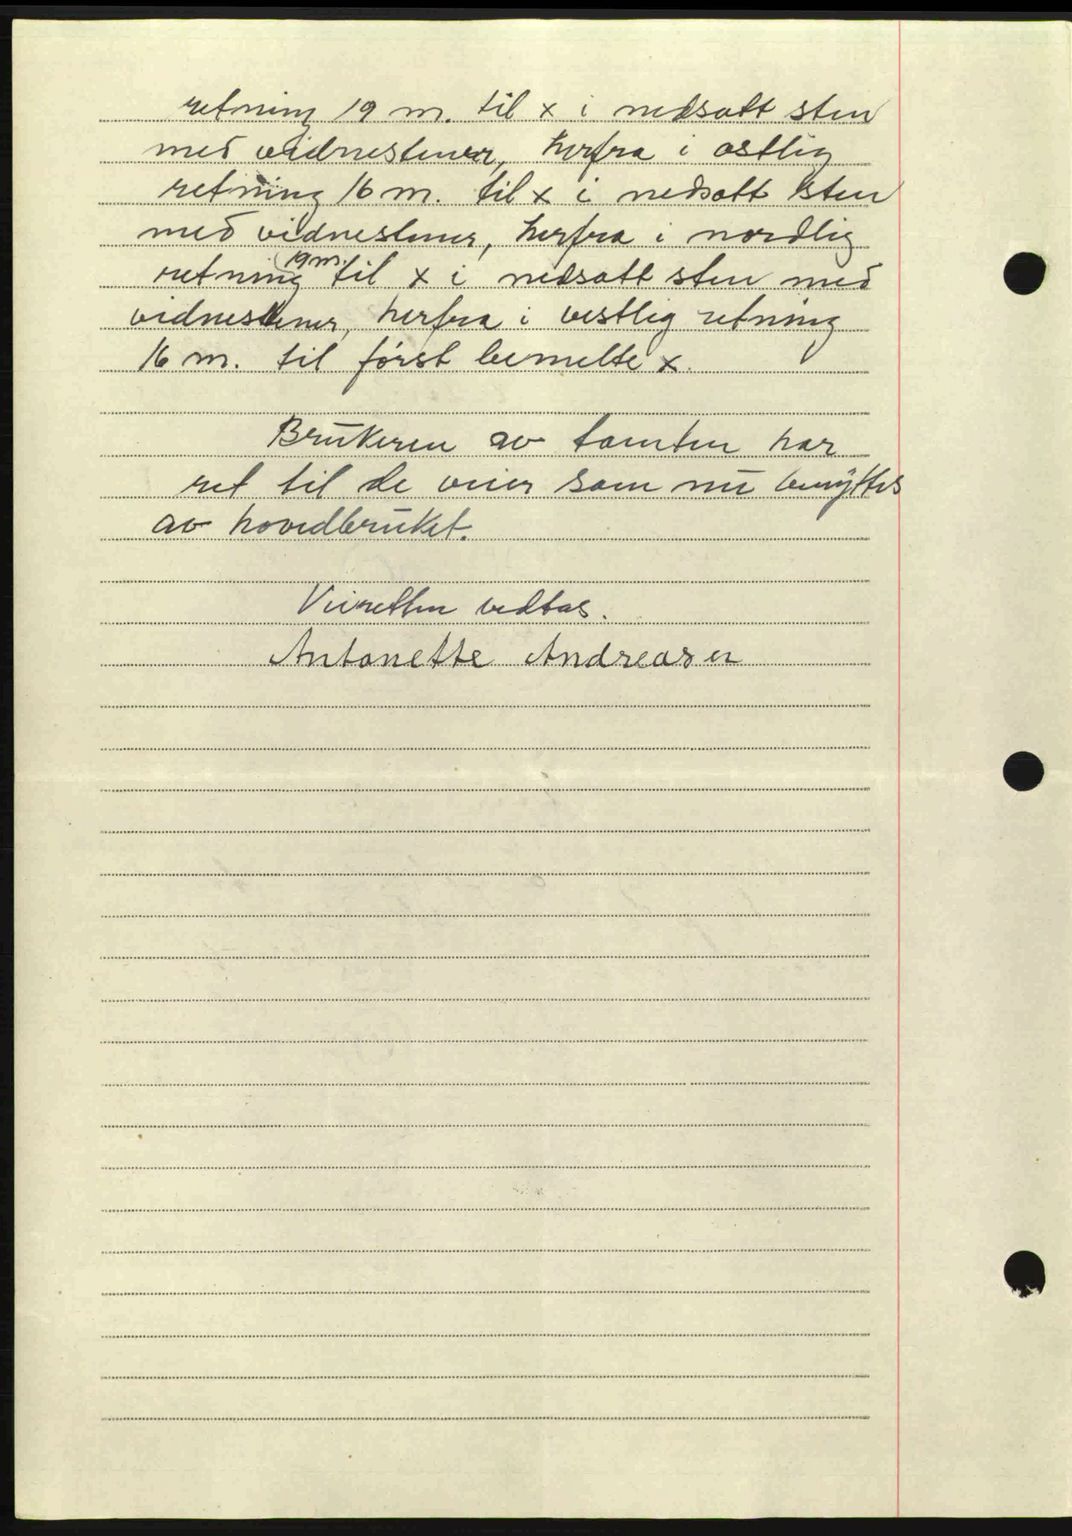 retning 19 m. til x i nedsatt sten
med vidnestener, herfra i østlig
retning 16 m. til x i nedsatt sten
med vidnestener, herfra i nordlig
retning 19 m. til x i nedsatt sten med
vidnestener, herfra i vestlig retning
16 m. til først bemelte x.
Brukeren av tomten har
ret til de veier som nu benyttes
av hovedbruket.
Veiretten vedtas.
Antonette Andreasen